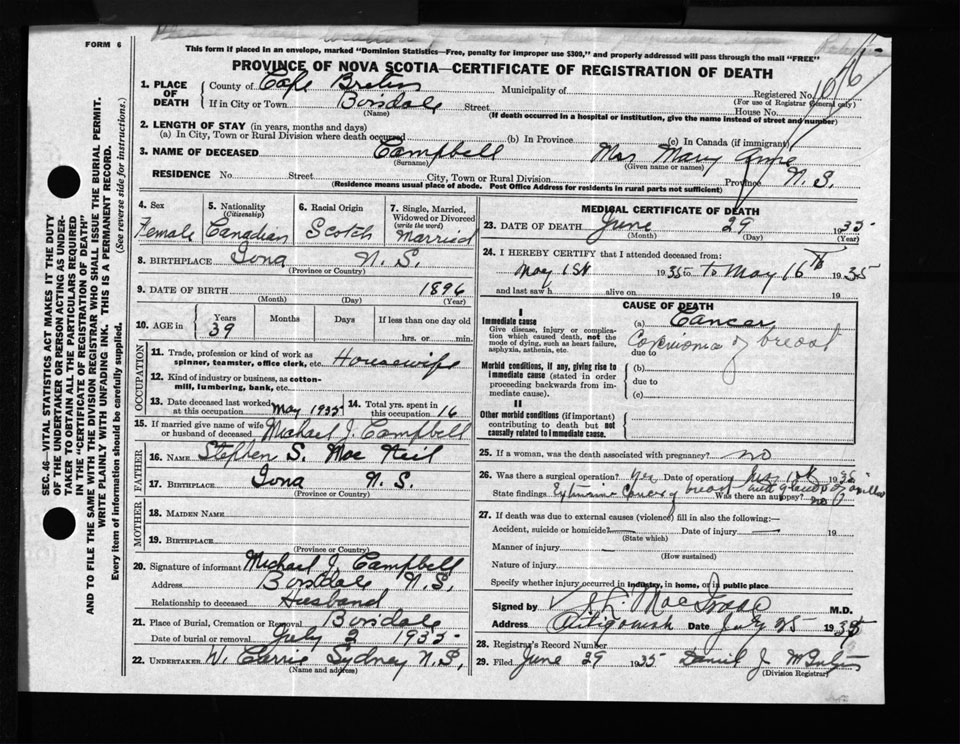 FORM 6
This form if placed in an envelope, marked "Dominion Statistics—Free, penalty for improper use $300," and properly addressed will pass through the mail "FREE"
PROVINCE OF NOVA SCOTIA—CERTIFICATE OF REGISTRATION OF DEATH
1. PLACE OF DEATH
County of Cape Breton Municipality of Registered No.
(For use of Registrar General only)
If in City or Town Boisdale Street House No.
(Name) (If death occurred in a hospital or institution, give the name instead of street and number)
2. LENGTH OF STAY (in years, months and days)
(a) In City, Town or Rural Division where death occurred (b) In Province (c) In Canada (if immigrant)
3. NAME OF DECEASED Campbell Mrs Mary Anne
(Surname) (Given name or names)
RESIDENCE No. Street City, Town or Rural Division Province N. S.
(Residence means usual place of abode. Post Office Address for residents in rural parts not sufficient)
4. Sex Female
5. Nationality (Citizenship) Canadian
6. Racial Origin Scotch
7. Single, Married, Widowed or Divorced (write the word) Married
8. BIRTHPLACE Iona N. S.
(Province or Country)
9. DATE OF BIRTH 1896
(Month) (Day) (Year)
10. AGE in Years Months Days If less than one day old
39 hrs. or min.
OCCUPATION
11. Trade, profession or kind of work as spinner, teamster, office clerk, etc. Housewife
12. Kind of industry or business, as cotton-mill, lumbering, bank, etc.
13. Date deceased last worked at this occupation May 1935
14. Total yrs. spent in this occupation 16
15. If married give name of wife or husband of deceased Michael J. Campbell
FATHER
16. NAME Stephen S. Mac Neil
17. BIRTHPLACE Iona N. S.
(Province or Country)
MOTHER
18. MAIDEN NAME
19. BIRTHPLACE
(Province or Country)
20. Signature of informant Michael J. Campbell
Address Boisdale N. S.
Relationship to deceased Husband
21. Place of Burial, Cremation or Removal Boisdale
Date of burial or removal July 2 1935
22. UNDERTAKER W. Currie Sydney N. S.
(Name and address)
MEDICAL CERTIFICATE OF DEATH
23. DATE OF DEATH June 29 1935
(Month) (Day) (Year)
24. I HEREBY CERTIFY that I attended deceased from:
May 1st 1935 to May 16th 1935
and last saw h alive on 19
CAUSE OF DEATH
I
Immediate cause
Give disease, injury or complication which caused death, not the mode of dying, such as heart failure, asphyxia, asthenia, etc.
(a) Cancer,
of breast
due to
Morbid conditions, if any, giving rise to immediate cause (stated in order proceeding backwards from immediate cause).
(b)
due to
(c)
II
Other morbid conditions (if important) contributing to death but not causally related to immediate cause.
25. If a woman, was the death associated with pregnancy? no
26. Was there a surgical operation? Yes Date of operation 1935
State findings cancer of breast Was there an autopsy? no
27. If death was due to external causes (violence) fill in also the following:—
Accident, suicide or homicide? — Date of injury — 19
(State which)
Manner of injury
(How sustained)
Nature of injury
Specify whether injury occurred in industry, in home, or in public place
Signed by M.D.
Address Antigonish Date July 25 1935
28. Registrar's Record Number
29. Filed June 29 1935 Daniel J.
(Division Registrar)
SEC. 46—VITAL STATISTICS ACT MAKES IT THE DUTY
OF THE UNDERTAKER OR PERSON ACTING AS UNDER-
TAKER TO OBTAIN ALL THE PARTICULARS REQUIRED
IN THE "CERTIFICATE OF REGISTRATION OF DEATH"
AND TO FILE THE SAME WITH THE DIVISION REGISTRAR WHO SHALL ISSUE THE BURIAL PERMIT.
WRITE PLAINLY WITH UNFADING INK. THIS IS A PERMANENT RECORD.
Every item of information should be carefully supplied. (See reverse side for instructions.)